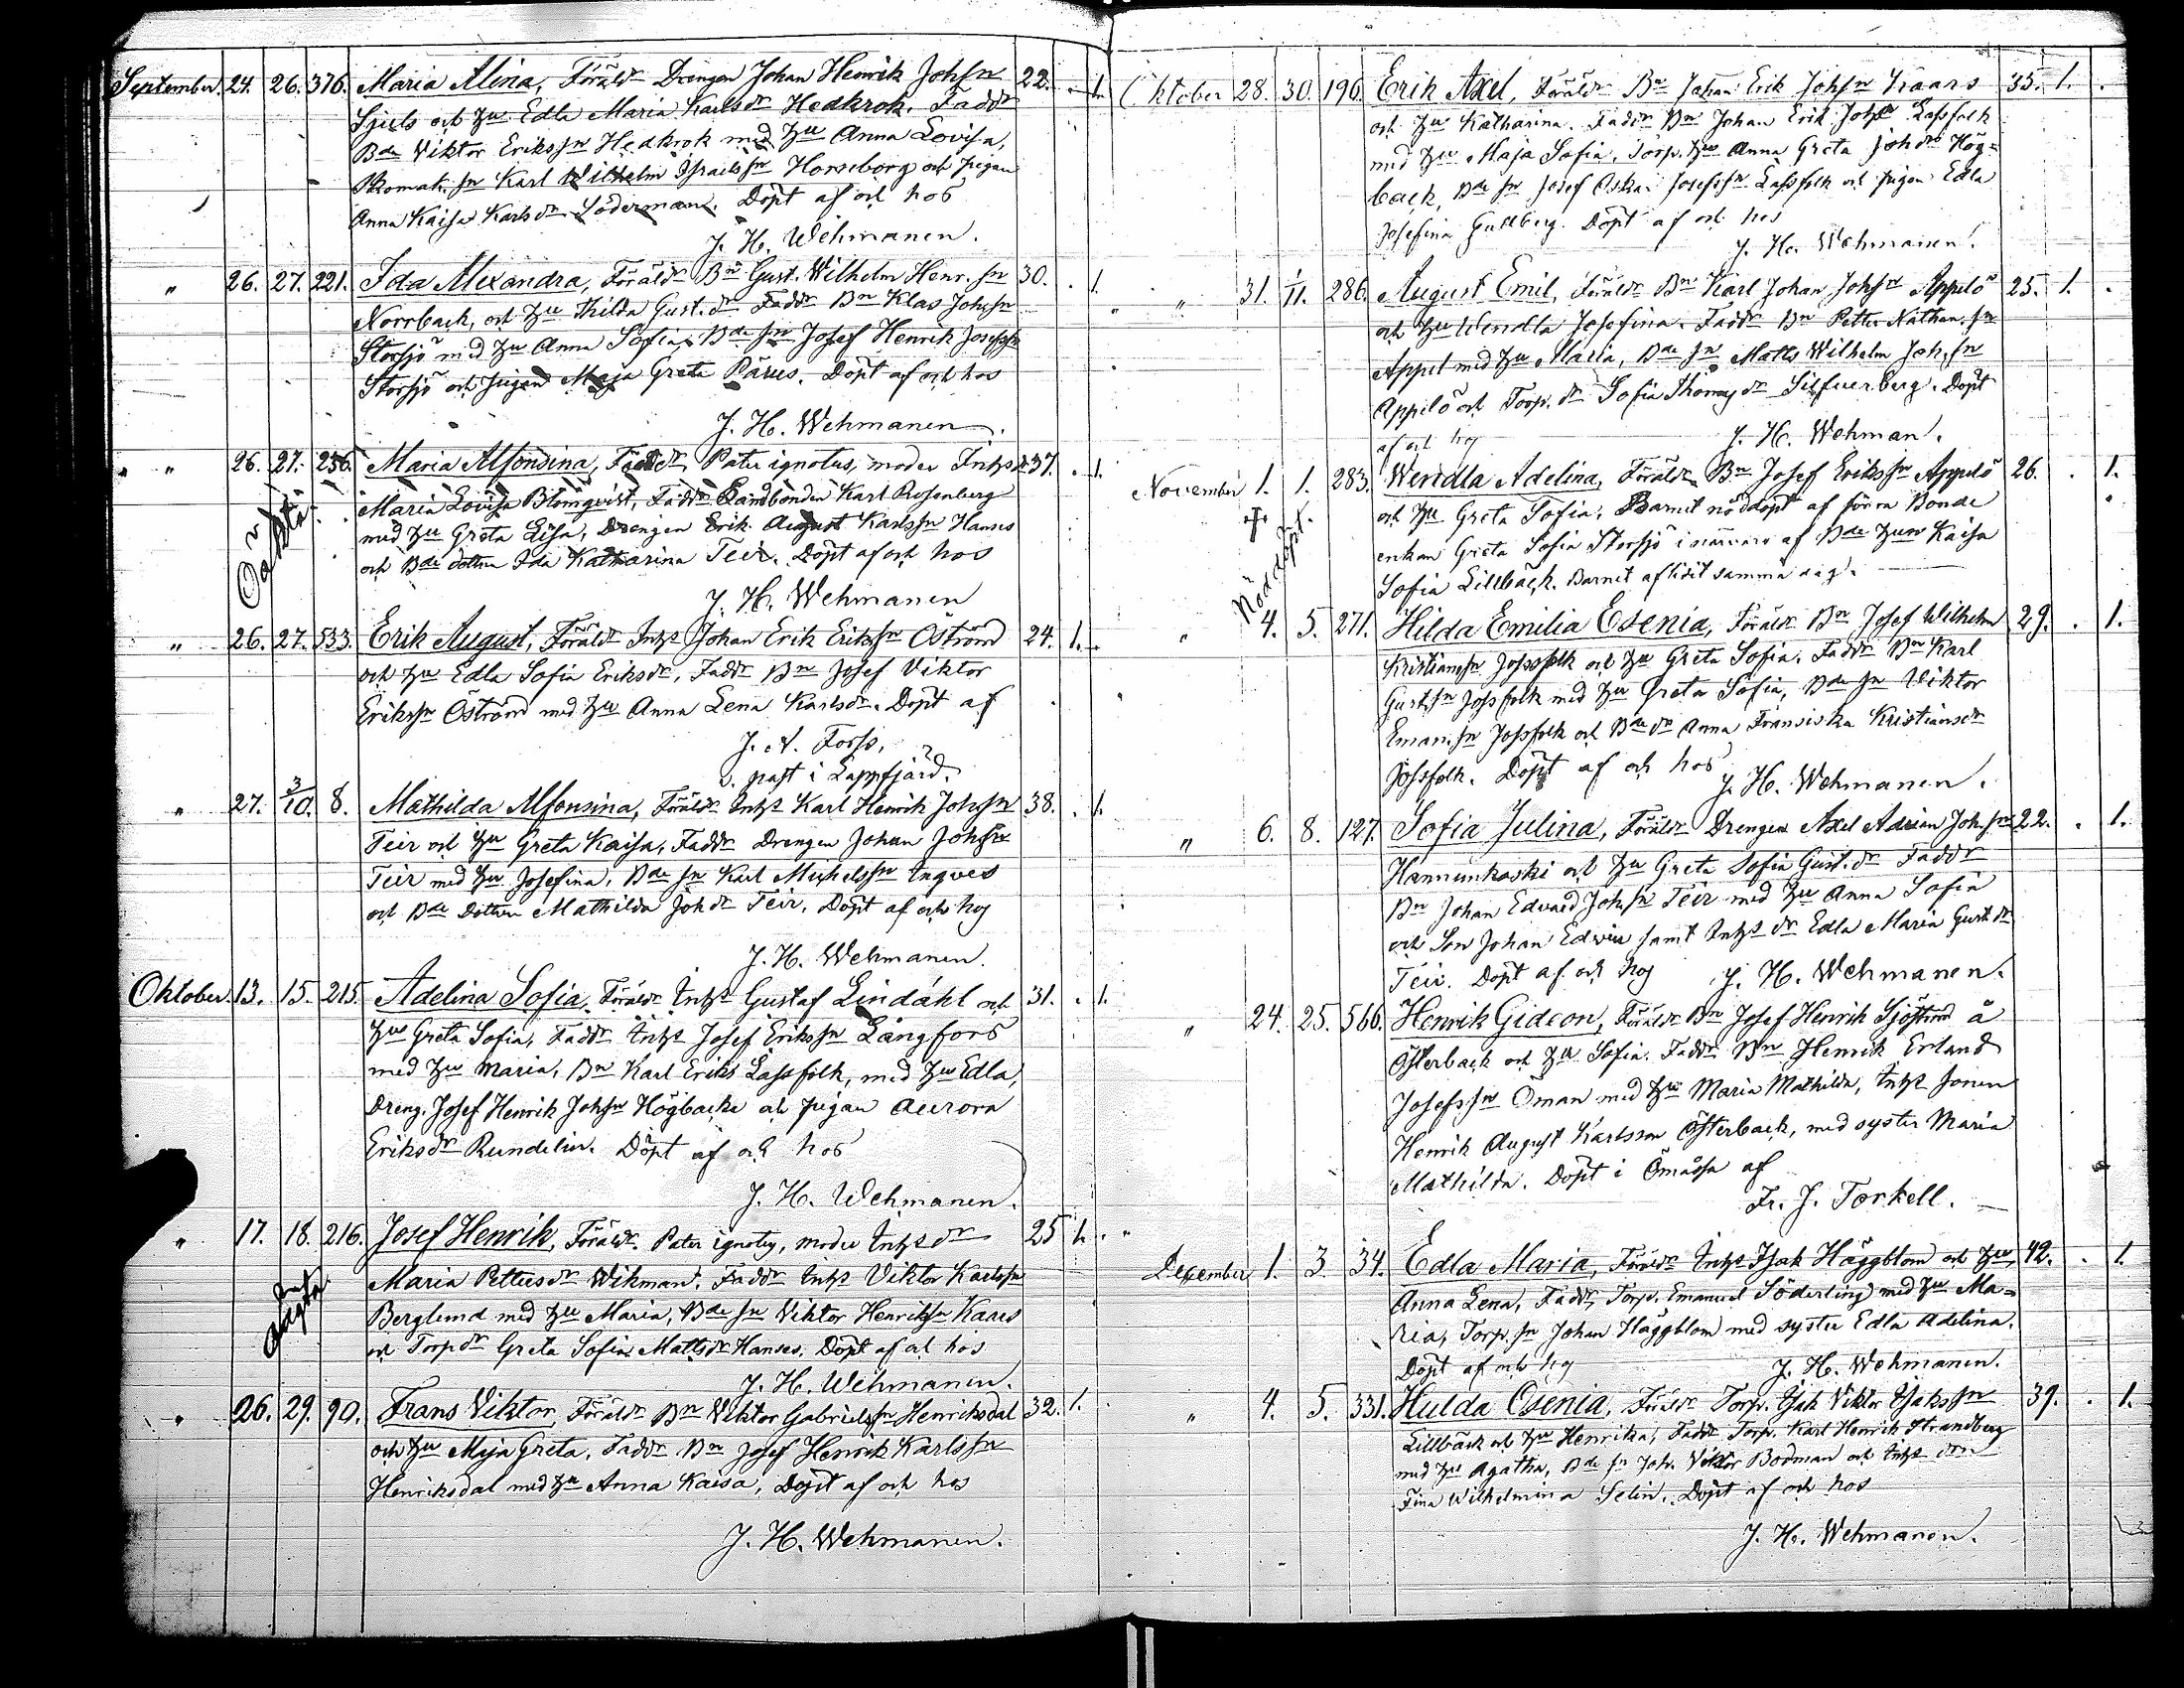 September. 24. 26. 376. Maria Alina, Föräldr Drengen Johan Henrik Johsn 22. . 1.
Sjuls och Hu Edla Maria Karlsdr Hedkrok. Faddr
Bde Viktor Erikssn Hedkrok med Hu Anna Lovisa,
Skomak. sn Karl Wilhelm Israelssn Horseborg och pigan
Anna Kaisa Karlsdr Söderman. Döpt af och hos
J. H. Wehmanen.
" 26. 27. 221. Ida Alexandra, Föräldr Bn Gust. Wilhelm Henr. sn 30. . 1.
Norrback, och Hu Hilda Gust. dr Faddr Bn Klas Johsn
Storsjö med Hu Anna Sofia, Bde sn Josef Henrik Josefssn
Storsjö och pigan Maja Greta Pärus. Döpt af och hos
J. H. Wehmanen.
" 26. 27. 256. Maria Alfonsina, Pater ignotus, moder Inhs 37. . 1.
Oäkta
Maria Lovisa Blomqvist, Faddr Landbonden Karl Rosenberg
med Hu Greta Lisa, Drengen Erik August Karlssn Hanses
och Bde dottren Ida Katharina Teir. Döpt af och hos
J. H. Wehmanen
" 26. 27. 533. Erik August, Föräldr Inhs Johan Erik Erikssn Öström 24. 1. .
och Hu Edla Sofia Eriksdr, Faddr Bn Josef Viktor
Erikssn Öström med Hu Anna Lena Karlsdr. Döpt af
J. A. Forss,
v. past i Lappfjärd.
" 27. 3/10. 8. Mathilda Alfonsina, Föräldr Inhs Karl Henrik Johssn 38. . 1.
Teir och Hu Greta Kaisa, Faddr Drengen Johan Johssn
Teir med Hu Josefina, Bde sn Karl Michelssn Ingves
och Bde Dottren Mathilda Johdr Teir. Döpt af och hos
J. H. Wehmanen.
Oktober. 13. 15. 215. Adelina Sofia, Föräldr Inhs Gustaf Lindahl och 31. . 1.
Hu Greta Sofia, Faddr Inhs Josef Erikssn Långfors
med Hu Maria, Bn Karl Eriks Lassfolk, med Hu Edla,
Dreng. Josef Henrik Johsn Högbacka och pigan Aurora
Eriksdr Rundelin. Döpt af och hos
J. H. Wehmanen.
" 17. 18. 216. Josef Henrik, Föräldr. Pater ignotus, moder Inhs dr 25 1. .
Maria Pettersdr Wikman. Faddr Inhs Viktor Karlssn
Berglund med Hu Maria, Bde sn Viktor Henrikssn Kaars
och Torpdr Greta Sofia Mattsdr Hanses. Döpt af och hos
J. H. Wehmanen.
" 26. 29. 90. Frans Viktor, Föräldr Bn Viktor Gabrielssn Henriksdal 32. 1. .
och Hu Maja Greta. Faddr Bn Josef Henrik Karlssn
Henriksdal med Hu Anna Kaisa, Döpt af och hos
J. H. Wehmanen.
Oktober 28. 30. 196. Erik Axel, Föräldr Bn Johan Erik Johsn Kaars 35. 1. .
och Hu Katharina. Faddr Bn Johan Erik Johsn Lassfolk
med Hu Maja Sofia, Torp. Hu Anna Greta Johdr Hög=
back, Bde sn Josef Oskar Josefssn Lassfolk och pigan Edla
Josefina Gullberg. Döpt af och hos
J. H. Wehmanen.
" 31. 1/11. 286. August Emil, Föräldr Bn Karl Johan Johsn Appelö 25. 1. .
och Hu Wendla Josefina. Faddr Bn Petter Nathan. sn
Appel med Hu Maria, Bde sn Matts Wilhelm Joh. sn
Appelö och Torp. dr Sofia Thomasdr Silfverberg. Döpt
af och hos J. H. Wehman.
November 1. 1. 283. Wendla Adelina, Föräldr Bn Josef Erikssn Appelö 26. . 1.
Nöddöpt.
och Hu Greta Sofia. Barnet nöddöpt af förra Bonde
enkan Greta Sofia Storsjö i närvaro af Bde Hun Kaisa
Sofia Lillbäck. Barnet aflidit samma dag.
" 4. 5. 271. Hilda Emilia Esenia, Föräldr Bn Josef Wilhelm 29. . 1.
Kristianssn Jossfolk och Hu Greta Sofia. Faddr Bn Karl
Gustssn Jossfolk med Hu Greta Sofia, Bde sn Viktor
Eman. sn Jossfolk och Bde dr Anna Fransiska Kristiansdr
Jossfolk. Döpt af och hos J. H. Wehmanen.
" 6. 8. 127. Sofia Julina, Föräldr Drengen Axel Adrian Joh. sn 22. . 1.
Hannunkoski och Hu Greta Sofia Gust. dr Faddr
Bn Johan Edvard Joh. sn Teir med Hu Anna Sofia
och Son Johan Edvin samt Inhs dr Edla Maria Gust. dr
Teir. Döpt af och hos J. H. Wehmanen.
" 24. 25. 566. Henrik Gideon, Föräldr Bn Josef Henrik Sjöström å
Österback och Hu Sofia. Faddr Bn Henrik Erland
Josefssn Öman med Hu Maria Mathilda, Inhs sonen
Henrik August Karlsson Österback, med syster Maria
Mathilda. Döpt i Ömossa af
Fr. J. Torkell.
December 1. 3. 34. Edla Maria, Föräldr Inhs Isak Häggblom och Hu 42. . 1.
Anna Lena, Faddr Torp. Emanuel Söderling med Hu Ma=
ria, Torp. sn Johan Häggblom med syster Edla Adelina.
Döpt af och hos J. H. Wehmanen.
" 4. 5. 331. Hulda Esenia, Föräldr Torp. Isak Viktor Isakssn 39. . 1.
Lillbäck och Hu Henrika, Faddr Torp. Karl Henrik Strandberg
med Hu Agatha, Bde sn Joh. Viktor Bodman och Inhs drn
Fina Wilhelmina Selin. Döpt af och hos
J. H. Wehmanen.